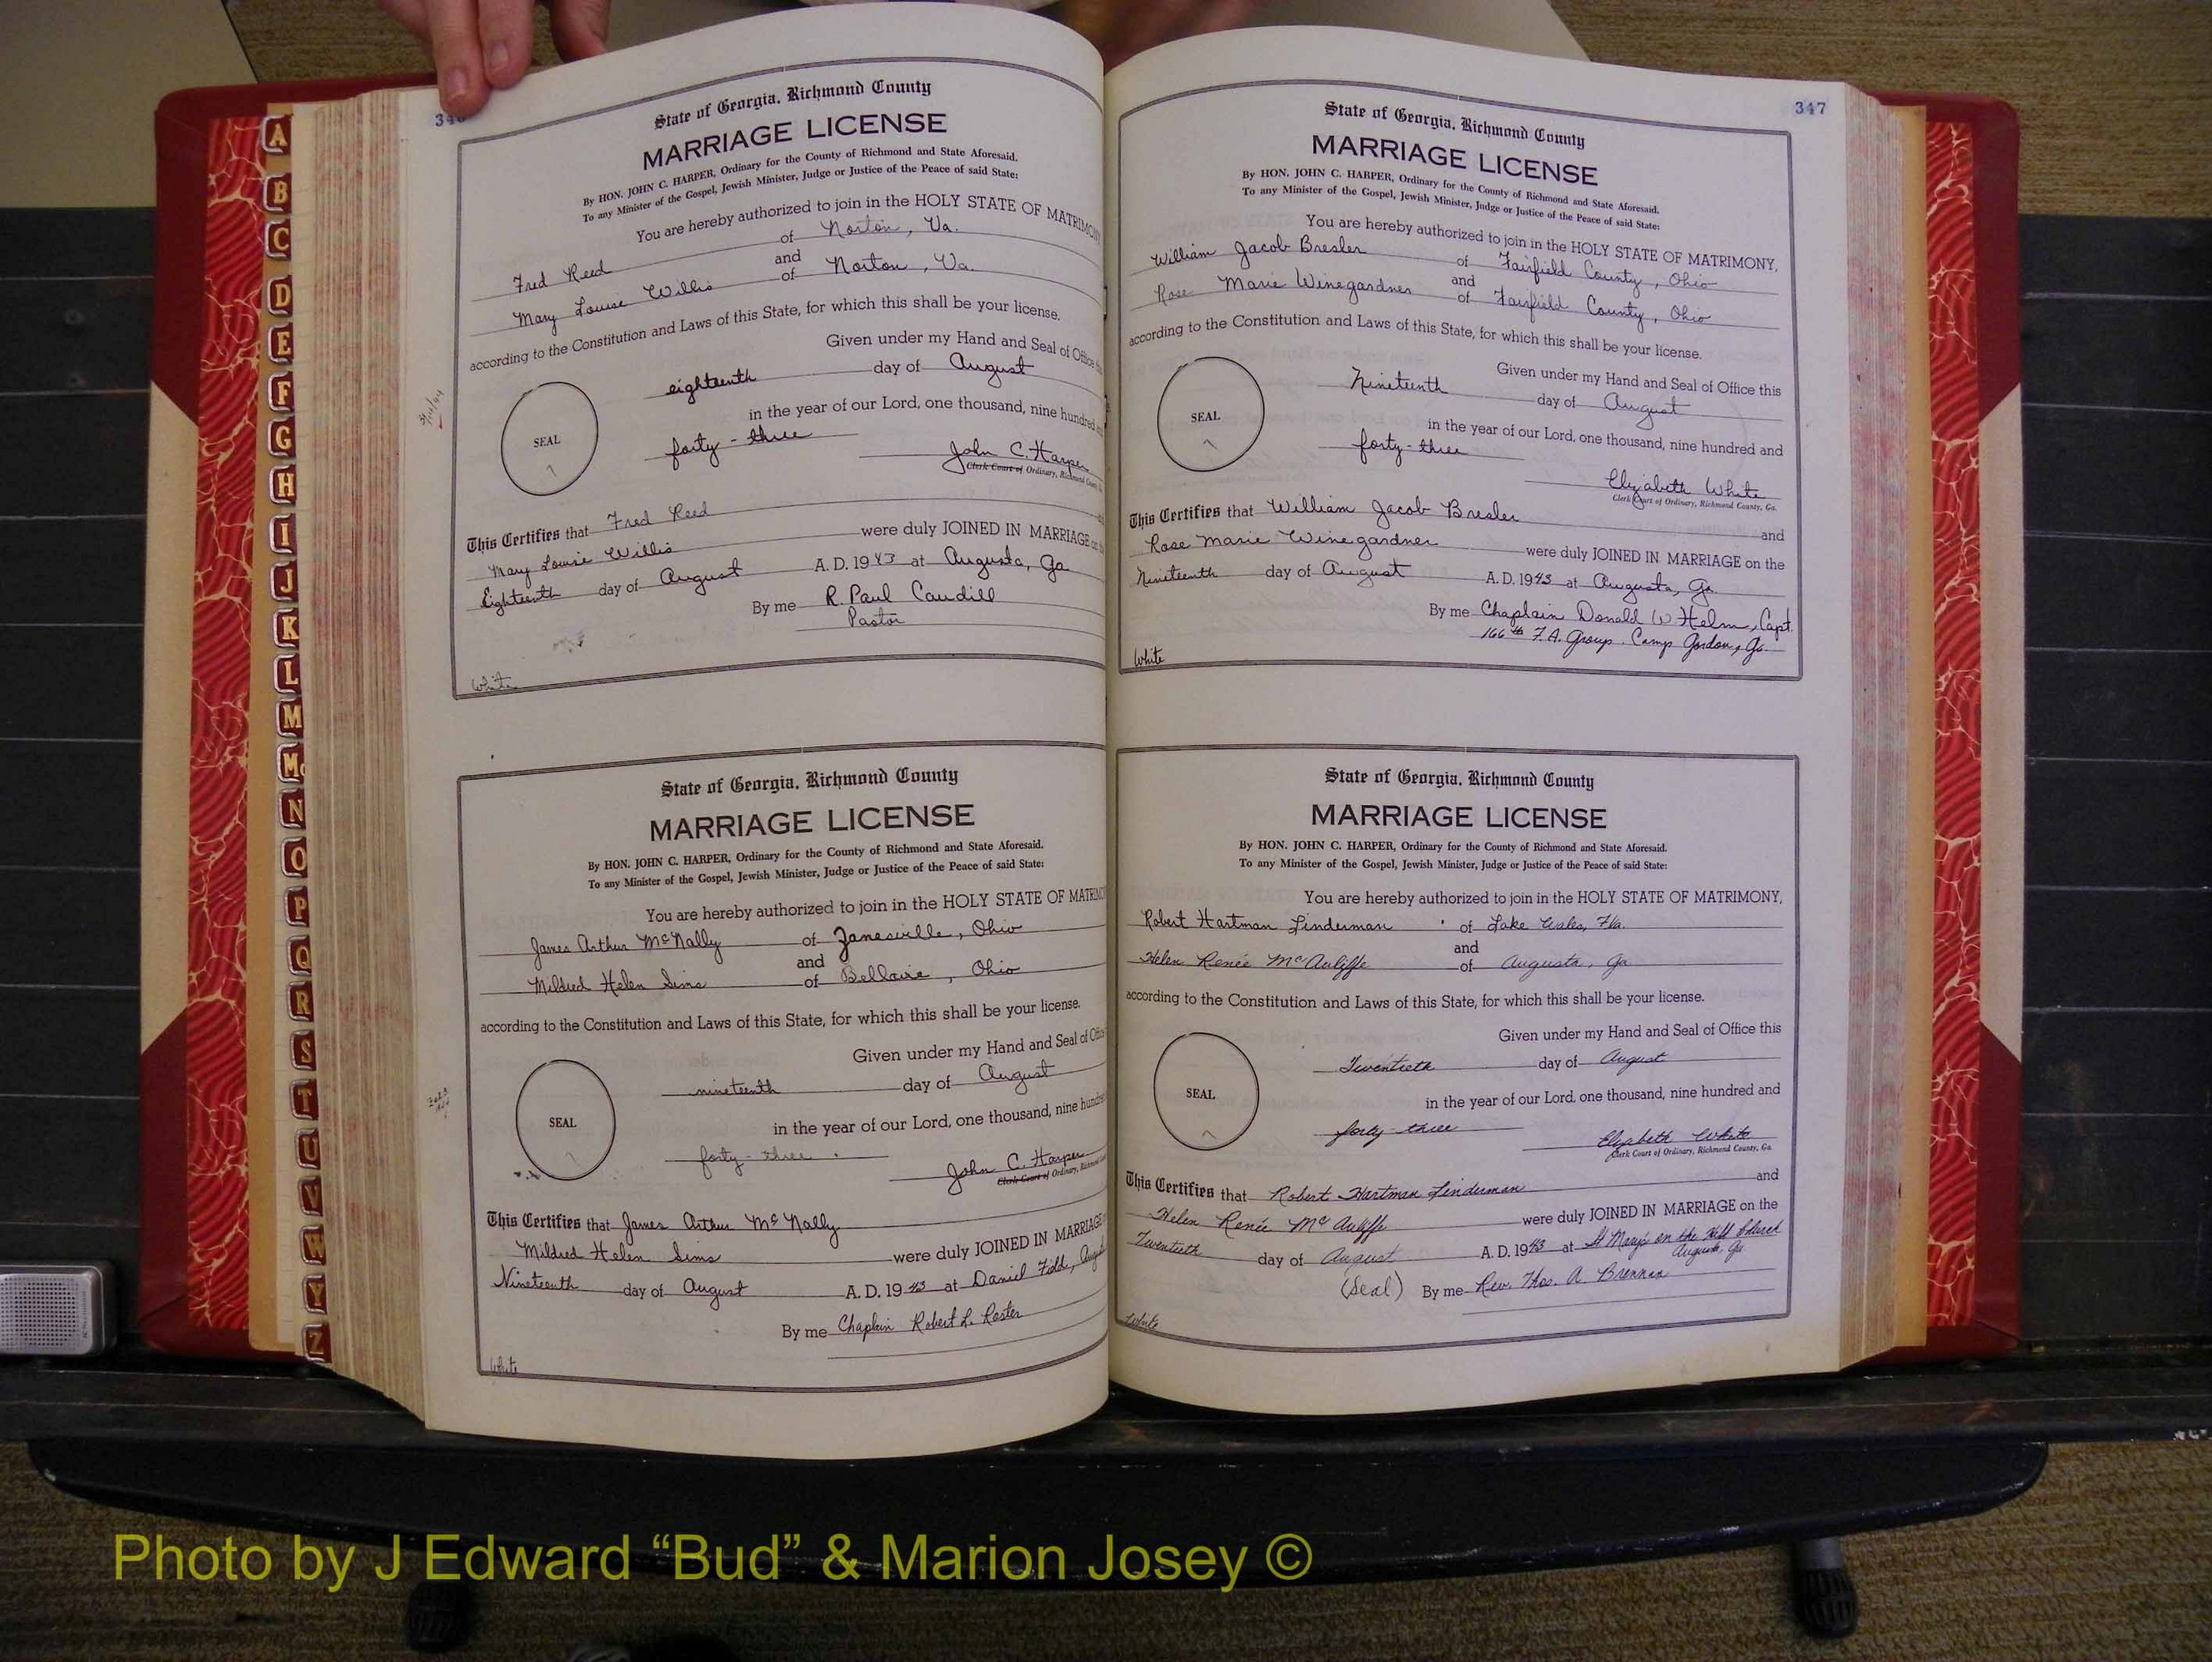 A
B
C
D
E
F
G
H
I
J
K
L
M
Mc
N
O
P
Q
R
S
T
U
V
W
Y
Z
346
State of Georgia, Richmond County
MARRIAGE LICENSE
By HON. JOHN C. HARPER, Ordinary for the County of Richmond and State Aforesaid.
To any Minister of the Gospel, Jewish Minister, Judge or Justice of the Peace of said State:
You are hereby authorized to join in the HOLY STATE OF MATRIMONY
Fred Reed of Norton, Va.
and
Mary Louise Willis of Norton, Va.
according to the Constitution and Laws of this State, for which this shall be your license.
Given under my Hand and Seal of Office
eighteenth day of August
in the year of our Lord, one thousand, nine hundred
SEAL
forty-three
John C. Harper
Clerk Court of Ordinary, Richmond
This Certifies that Fred Reed
Mary Louise Willis were duly JOINED IN MARRIAGE
Eighteenth day of August A. D. 1943 at Augusta, Ga
By me R. Paul Caudill
Pastor
White
State of Georgia, Richmond County
MARRIAGE LICENSE
By HON. JOHN C. HARPER, Ordinary for the County of Richmond and State Aforesaid.
To any Minister of the Gospel, Jewish Minister, Judge or Justice of the Peace of said State:
You are hereby authorized to join in the HOLY STATE OF
James Arthur McNally of Zanesville, Ohio
and
Mildred Helen Sims of Bellaire, Ohio
according to the Constitution and Laws of this State, for which this shall be your license.
Given under my Hand and Seal of
nineteenth day of August
in the year of our Lord, one thousand, nine
SEAL
forty-three
John C. Harper
Clerk Court of Ordinary,
This Certifies that James Arthur McNally
Mildred Helen Sims were duly JOINED IN MARRIAGE
Nineteenth day of August A. D. 1943 at Daniel Field,
By me Chaplain Robert L. Rester
White
347
State of Georgia, Richmond County
MARRIAGE LICENSE
By HON. JOHN C. HARPER, Ordinary for the County of Richmond and State Aforesaid.
To any Minister of the Gospel, Jewish Minister, Judge or Justice of the Peace of said State:
You are hereby authorized to join in the HOLY STATE OF MATRIMONY,
William Jacob Bresler of Fairfield County, Ohio
and
Rose Marie Winegardner of Fairfield County, Ohio
according to the Constitution and Laws of this State, for which this shall be your license.
Given under my Hand and Seal of Office this
Nineteenth day of August
in the year of our Lord, one thousand, nine hundred and
SEAL
forty-three
Elizabeth White
Clerk Court of Ordinary, Richmond County, Ga.
This Certifies that William Jacob Bresler and
Rose Marie Winegardner were duly JOINED IN MARRIAGE on the
Nineteenth day of August A. D. 1943 at Augusta, Ga.
By me Chaplain Donald W Helm, Capt.
166th F.A. Group. Camp Gordon, Ga.
White
State of Georgia, Richmond County
MARRIAGE LICENSE
By HON. JOHN C. HARPER, Ordinary for the County of Richmond and State Aforesaid.
To any Minister of the Gospel, Jewish Minister, Judge or Justice of the Peace of said State:
You are hereby authorized to join in the HOLY STATE OF MATRIMONY,
Robert Hartman Linderman of Lake Wales, Fla.
and
Helen Renée McAuliffe of Augusta, Ga
according to the Constitution and Laws of this State, for which this shall be your license.
Given under my Hand and Seal of Office this
Twentieth day of August
in the year of our Lord, one thousand, nine hundred and
SEAL
forty-three
Elizabeth White
Clerk Court of Ordinary, Richmond County, Ga.
This Certifies that Robert Hartman Linderman and
Helen Renée McAuliffe were duly JOINED IN MARRIAGE on the
Twentieth day of August A. D. 1943 at St Mary's on the Hill Church
Augusta, Ga
(Seal) By me Rev. Thos. A. Brennan
White
Photo by J Edward “Bud” & Marion Josey ©